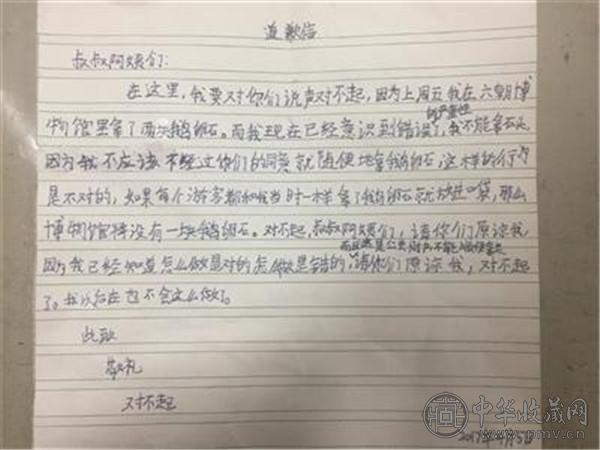 道歉信
叔叔阿姨们:
在这里,我要对你们说声对不起,因为上周五我在六朝博
物馆里拿了两块鹅卵石。而我现在已经意识到错误的严重性了,我不能拿石头
因为我不应该不经过你们的同意就随便地拿鹅卵石,这样的行为
是不对的,如果每个游客都和我当时一样拿了鹅卵石就放进口袋,那么
博物馆将没有一块鹅卵石。对不起,叔叔阿姨们,请你们原谅我,
而且这是公共财物不能随便拿走
因为我已经知道怎么做是对的怎么做是错的,请你们原谅我,对不起
了。我以后在也不会这么做了。
此致
敬礼
对不起
2017年4月5日
中华收藏网
www.pmv.cn